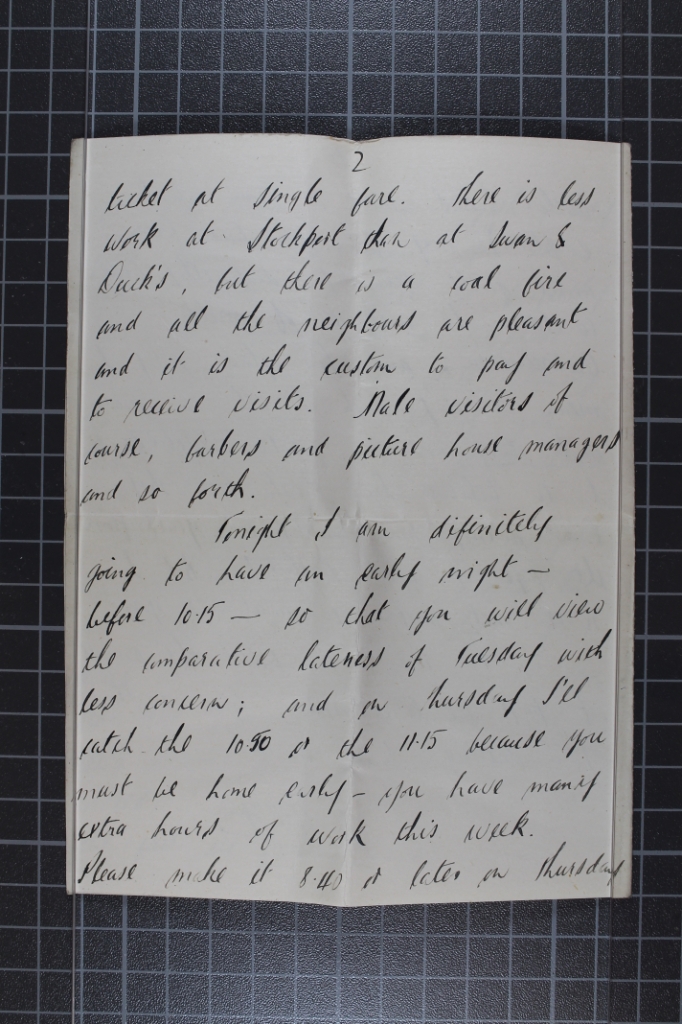 2
ticket at single fare. There is less
work at Stockport than at Swan &
Duck's, but there is a coal fire
and all the neighbours are pleasant
and it is the custom to pay and
to receive visits. Male visitors of
course, barbers and picture house managers
and so forth.
Tonight I am difinitely
going to have an early night —
before 10.15 — so that you will view
the comparative lateness of Tuesday with
less concern; and on Thursday I'll
catch the 10.50 or the 11.15 because you
must be home early – you have many
extra hours of work this week.
Please make it 8.40 or later on Thursday